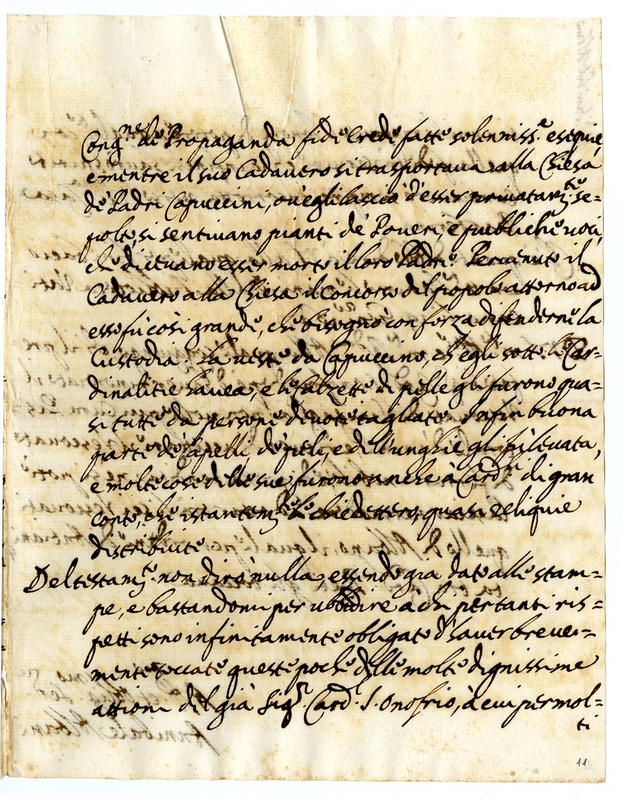 Cong.ne de Propaganda fide Erede fatte solenniss.e esequie,
e mentre il suo Cadavero si trasportava alla Chiesa
de' Padri Capuccini, ov'egli lasciò d'esser privatam.te se=
polto, si sentivano pianti de' Poveri, e publiche voci,
che dicevano esser morto il loro Padre. Pervenuto il
Cadavero alla Chiesa il Concorso del popolo attorno ad
esso fù così grande, che bisognò con forza difenderne la
Custodia. La veste da Capuccino, ch'egli sotto le Car=
dinalitie havea, e le calzette di pelle gli furono qua=
si tutte da persone devote tagliate. Infin buona
parte de' capelli, de' peli, e dell'unghie gli fù levata,
e molte cose delle sue furono anche à Card.li di gran
conto, che istantem.te le chiedettero, quasi reliquie
distribuite.
Del testam.to non dirò nulla, essendo già dato alle stam=
pe, e bastandomi per ubbidire a chi per tanti ris=
petti sono infinitamente obligato d'haver breve=
mente toccate queste poche delle molte dignissime
attioni del già Sig.r Card. S. Onofrio, à cui per mol=
ti
11